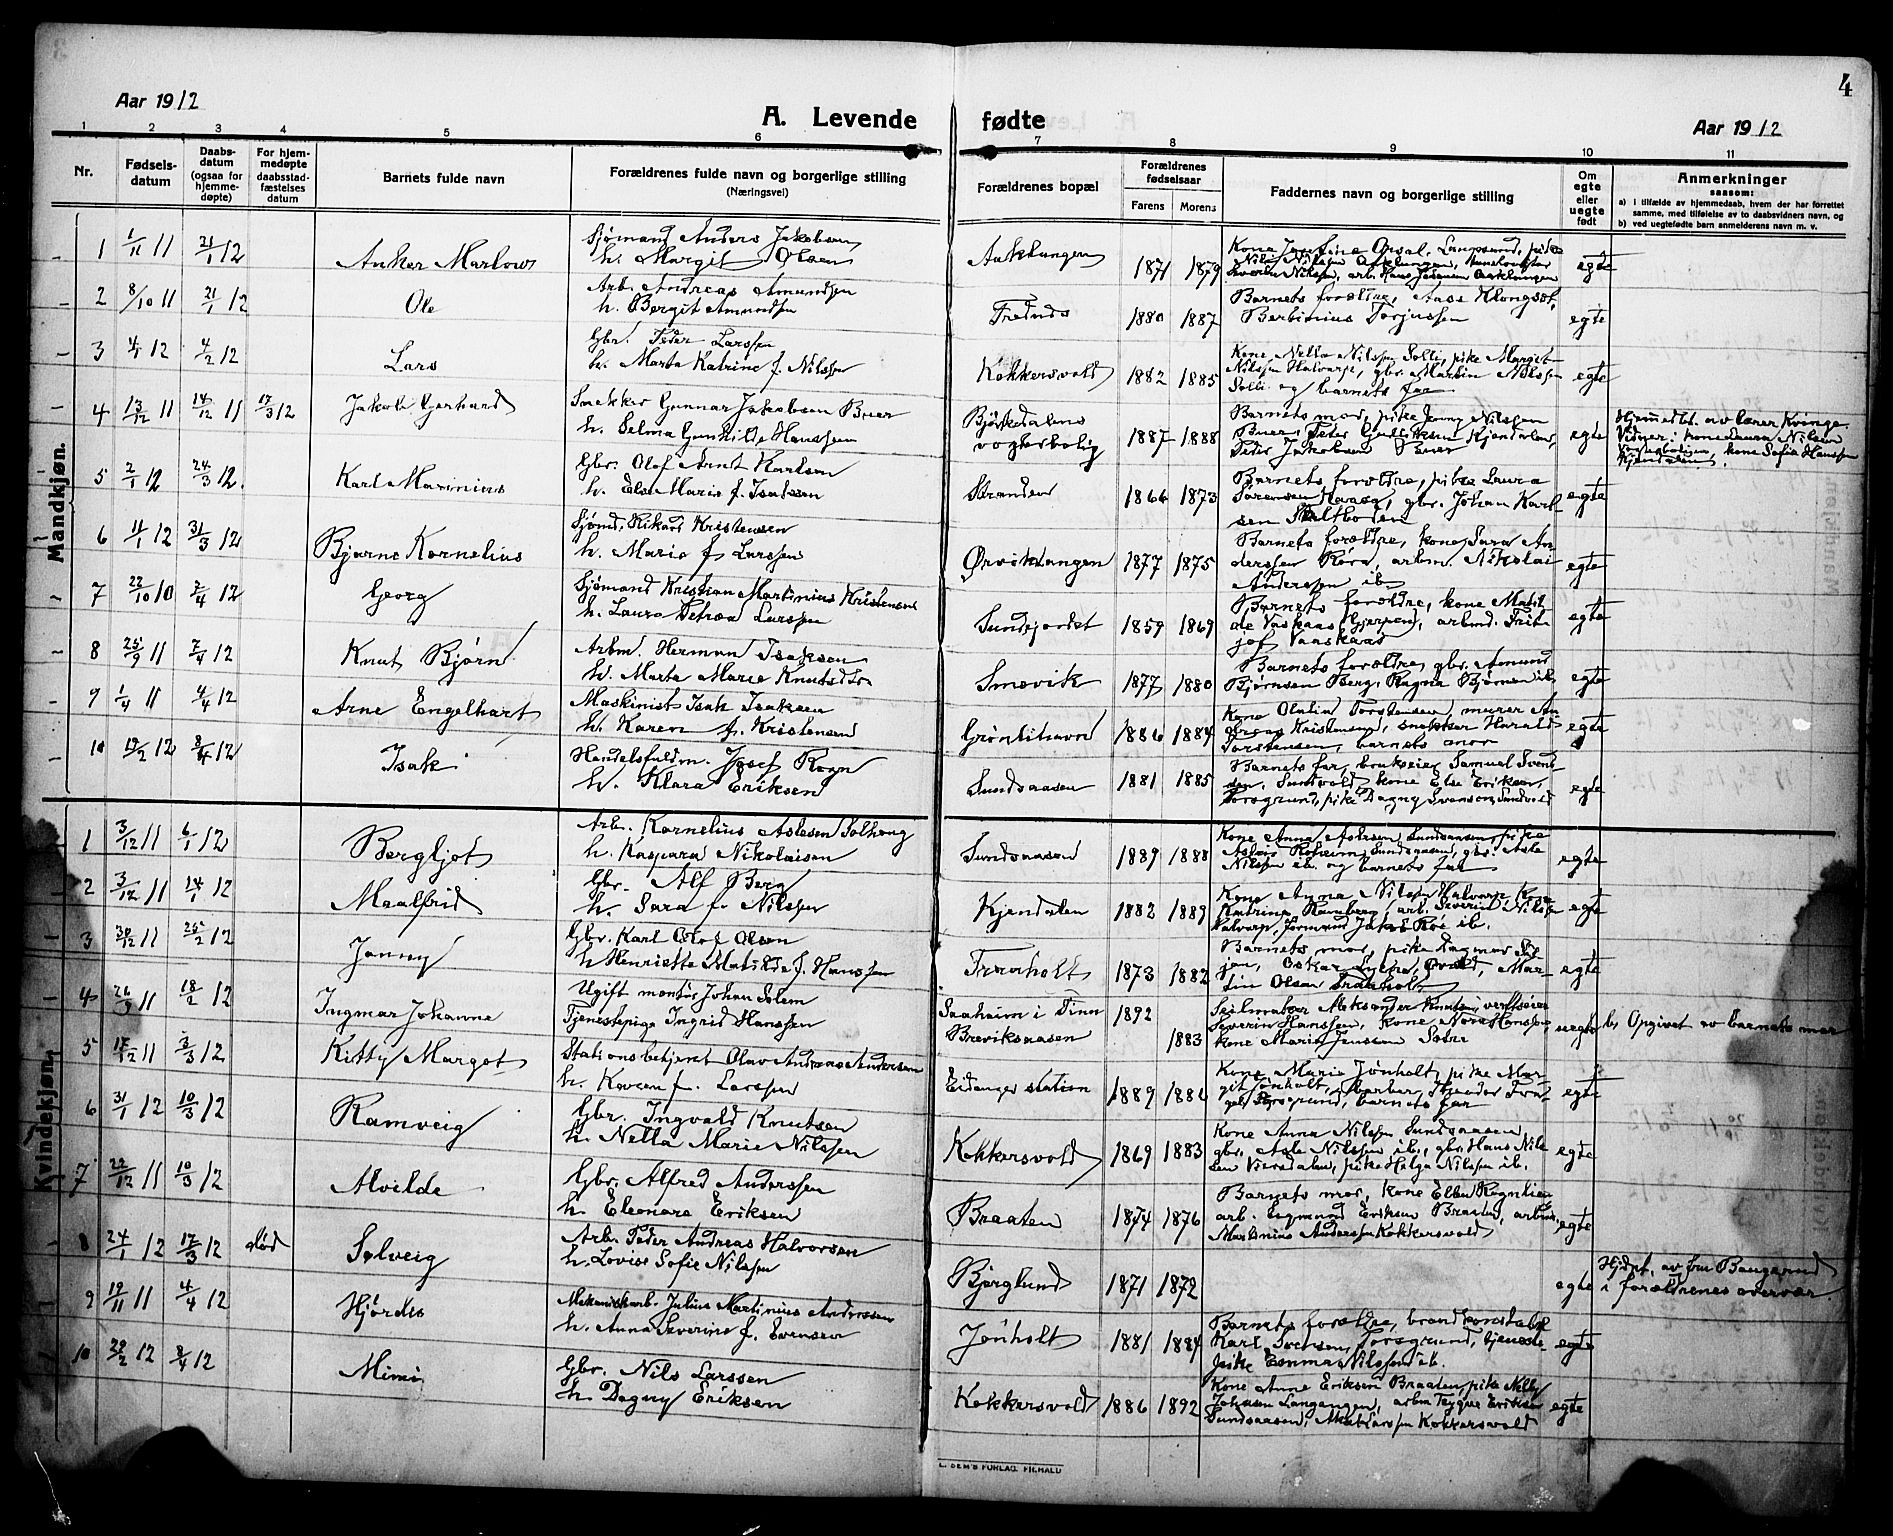 4
Aar 1912
A. Levende fødte
Aar 1912
1 2 3 4 5 6 7 8 9 10 11
Nr.
Fødsels-
datum
Daabs-
datum
(ogsaa for
hjemme-
døpte)
For hjem-
medøpte
daabsstad-
fæstelses
datum
Barnets fulde navn
Forældrenes fulde navn og borgerlige stilling
(Næringsvei)
Forældrenes bopæl
Forældrenes
fødselsaar
Farens Morens
Faddernes navn og borgerlige stilling
Om
egte
eller
uegte
født
Anmerkninger
saasom:
a) i tilfælde av hjemmedaab, hvem der har forrettet
samme, med tilføielse av to daabsvidners navn, og
b) ved uegtefødte barn anmelderens navn m. v.
Mandkjøn.
1 1/11 11 21/1 12 Anker Marlows
Sjømand Anders Jakobsen
h. Margit Olsen
1871 1879
egte
2 8/10 11 21/1 12 Ole
Arb. Andreas Amundsen
h. Bergit Amundsen
1880 1887
Barnets forældre, Aass Klongsh.
Bertinius Torjussen
egte
3 4/2 12 Lars
Gbr. Peder Larssen
h. Marta Katrine f. Nilssen
Kokkersvold 1882 1885
Kone Nella Nilssen Solli, pike Margit
Nilssen Halvarp, gbr. Martin Nilssen
Solli og barnets far
egte
4 13/12 11 14/12 11 17/3 12 Jakob Gerhard
Snekker Gunnar Jakobsen Buer
h. Selma Gunhilde Hanssen
Bjørkedalens
vogterbolig 1887 1888
Barnets mor, pike Jenny Nilssen
Buer, Peder Gulliksen Kjendalen,
Peder Jakobsen Buer
egte
Hjemmedbt. av lærer Kvinge
Vidner: kone Laura Nilsen
kone Sofie Hanssen
Kjendalen.
5 2/1 12 24/3 12. Karl Marinius
Gbr. Olof Arnt Karlsen
h. Else Marie f. Isaksen
Stranden 1866 1873
Barnets forældre, pike Laura
Sørensen Haaea, gbr. Johan Karl-
sen Saltboden
egte
6 11/1 12 31/3 12 Bjarne Kornelius
Sjømd. Rikard Kristensen
h. Marie f. Larssen
Ørviktangen 1877 1875
Barnets forældre, kone Sara An-
derssen Røra, arbm. Nikolai
Anderssen ib.
egte
7 22/10 10 2/4 12 Georg
Sjømand Kristian Martinius Kristensen
h. Laura Petrea Larssen
Sundsjordet 1859 1869
Barnets forældre, kone Matil-
de Vaskaas (Gjerpen), arbmd. Frit-
jof Vaaskaas
egte
8 25/9 11 7/4 12 Knut Bjørn
Arbm. Herman Isaksen
h. Marte Marie Knutsdtr.
Smevik 1877 1880
Barnets forældre, gbr. Amund
Bjørnsen Berg, Ragna Bjørnsen ib
egte
9 1/4 11 4/4 12 Arne Engelhart
Maskinist Isak Isaksen
h. Karen f. Kristensen
Grøntihavn 1886 1884
Kone Olalia Torstensen, murer An-
dreas Kristensen, snekker Harald
Torstensen, barnets mor
egte
10 8/4 12 Isak
Handelsfuldm. Josef Rogn
h. Klara Eriksen
Sundsaasen 1881 1885
Barnets far, brukseier Samuel Svend-
sen, Sundvold, kone Else Eriksen,
Porsgrund, pike Dagny Svensen, Sundvold
egte
Kvindekjøn.
1 3/12 11 6/1 12 Bergljot
Arb. Kornelius Aslesen Solhaug
h. Kaspara Nikolaisen
Sundsaasen 1889 1888
Kone Anna Aslesen Sundsaasen, pike
Sundsaasen, gbr. Asle
Nilssen ib. og barnets far
egte
2 3/12 11 14/1 12 Maalfrid
Gbr. Alf Berg
h. Sara f. Nilssen
Kjendalen 1882 1889
Kone Anna Nilssen Halvarp, Kone
Katrine Ramberg, arb. Severin Nilssen
Halvarp, formand Jakob Roe ib.
egte
3 30/12 11 25/2 12 Jenny
Gbr. Karl Olof Olsen
h. Henriette Matilde f. Hanssen
Tveenholt 1873 1882
Barnets mor, pike Dagmar
Oskar Mar-
tin Olsen
egte
4 26/9 11 18/2 12 Ingmar Johanne
Ugift montør Johan Solem
Tjenestepige Ingrid Hanssen
Saaheim i Tinn
Breviksaasen
1892 1883
Seilmaker Aleksander Knutsen, verftseier
Severin Hanssen, kone Nora Hanssen,
kone Marie Jenssen
uegte
b. Opgivet av barnets mor
5 17/12 11 3/3 12 Kitty Margot
Stationsbetjent Olav Andreas Andersen
h. Karen f. Larssen
Eidanger station 1889 1886
Kone Marie Jønholt, pike Mar-
git Jønholt, barber Theodor
Porsgrund, barnets far
egte
6 31/1 12 10/3 12 Ramveig
Gbr. Ingvald Knutsen
h. Nella Marie Nilssen
Kokkersvold 1869 1883
Kone Anna Nilssen Sundsaasen,
gbr. Asle Nilssen ib., gbr. Hans Nils-
sen Viersdalen, pike Helga Nilssen ib.
egte
7 22/12 11 10/3 12 Alvilde
Gbr. Alfred Anderssen
h. Eleonora Eriksen
Braaten 1874 1876
Barnets mor, kone Ellen Rognlien
arb. Sigmund Eriksen Braaten, arbm.
Martinius Anderssen Kokkersvold
egte
8 24/1 12 17/3 12 død Solveig
Arb. Peder Andreas Halvorsen
h. Lovise Sofie Nilssen
Bjerglund 1871 1872
egte
Hjdpt. av fru Bangerud
i forældrenes overvær
9 19/11 11 4/4 12 Hjørdis
Mekaniskarb. Julius Martinius Anderssen
h. Anna Severine f. Evensen
Jønholt 1881 1884
Barnets forældre, brandkonstabel
Karl Iversen, Porsgrund, tjeneste-
pike Emma Nilssen ib.
egte
10 29/2 12 8/4 12 Mimi
Gbr. Nils Larssen
h. Dagny Eriksen
Kokkersvold 1886 1892
Kone Anne Eriksen Braaten, pike Nelly
Johnsen Langangen, arbm Trygve Eriksen
Sundsaasen, Mat. Larssen Kokkersvold
egte
E. SEM'S FORLAG, FR.HALD